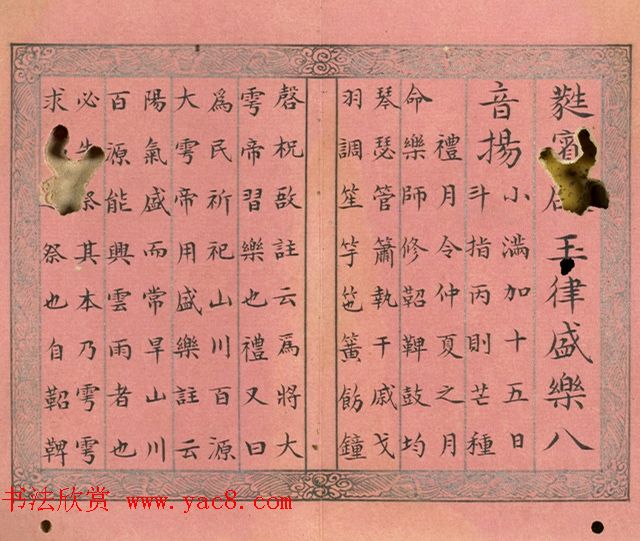 蕤賓玉律盛樂八
音揚
小滿加十五日
斗指丙則芒種
禮月令仲夏之月
命樂師修鞀鞞鼓均
琴瑟管簫執干戚戈
羽調笙竽竾簧飭鐘
磬柷敔註云爲將大
雩帝習樂也禮又曰
爲民祈祀山川百源
大雩帝用盛樂註云
陽氣盛而常旱山川
百源能興雲雨者也
必先祭其本乃雩雩
求祭也自鞀鞞
书法欣赏 www.yac8.com